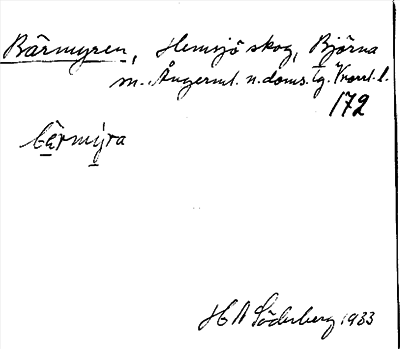 Bärmyren, Hemsjö skog, Björna
m. Ångerml. n. doms. tg. Vnorrl. l.
172
bärmýra
H A Söderberg 1933